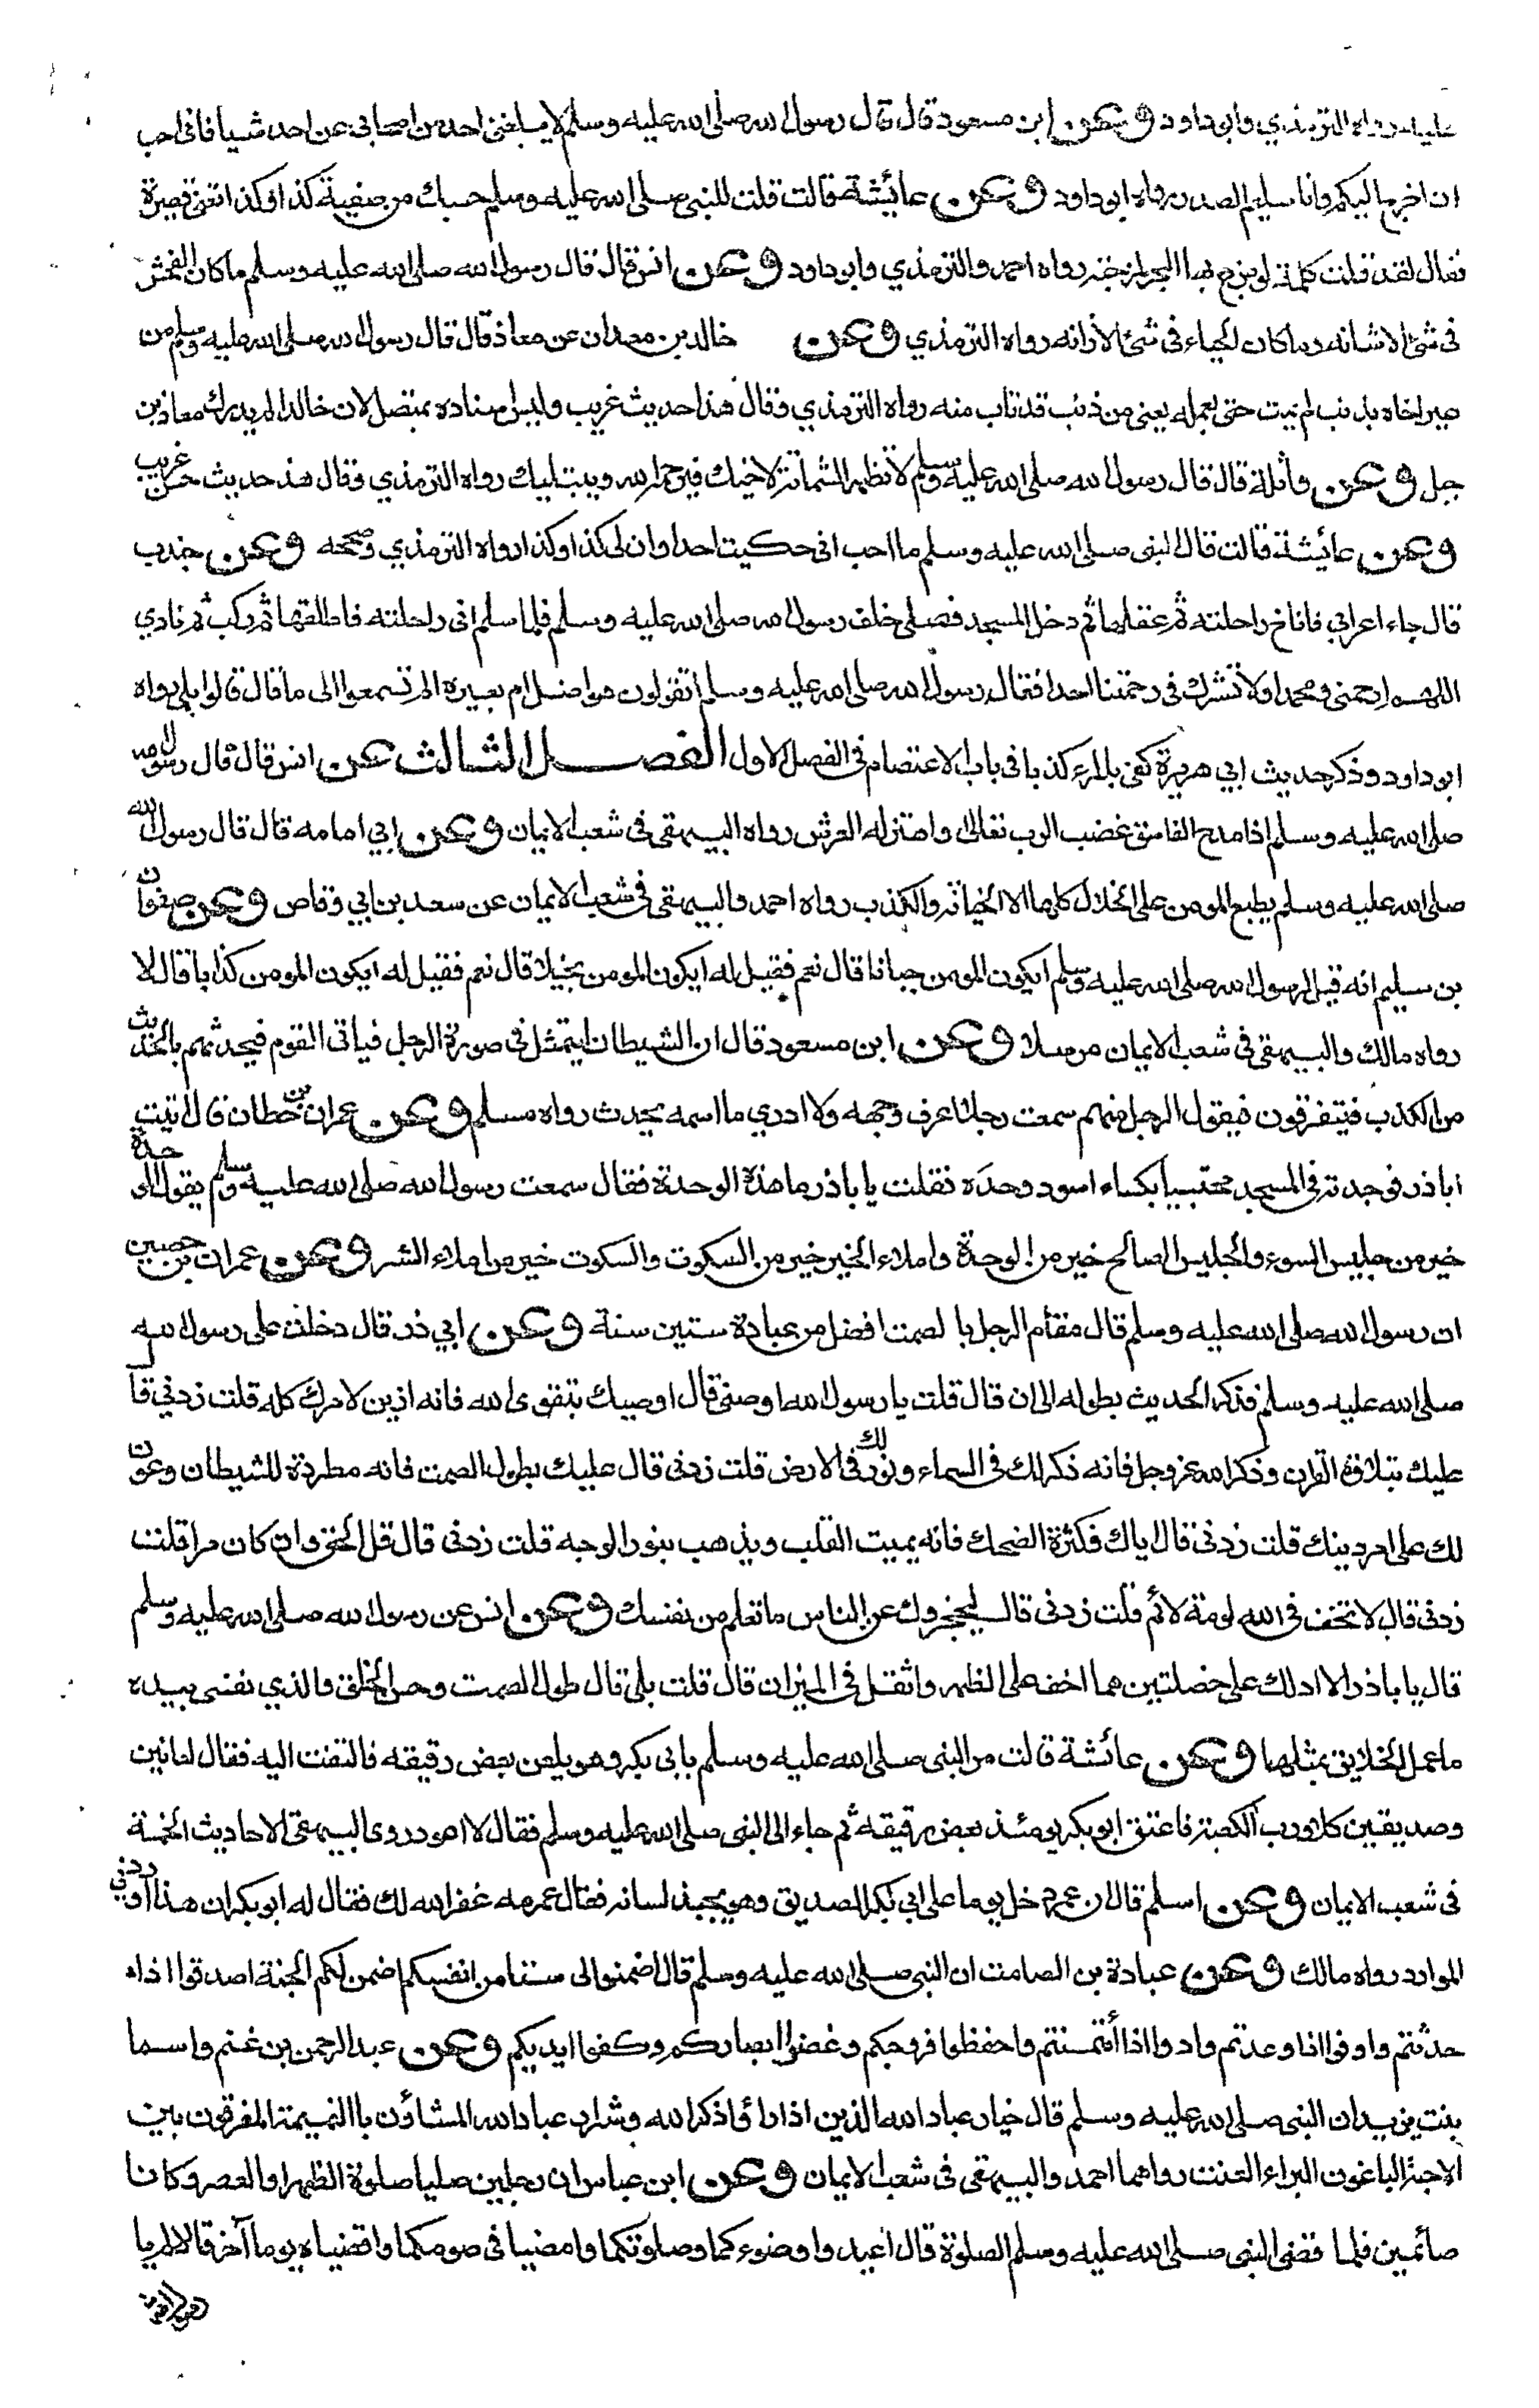 عليه رواه الترمذي وابوداود وعن ابن مسعود قال قال رسول الله صلى الله عليه وسلم لا يبلغني احد من اصحابي عن احد شيا فاني احب
ان اخرج اليكم وانا سليم الصدر رواه ابوداود وعن عائشة قالت قلت للنبي صلى الله عليه وسلم حسبك من صفية كذا وكذا تعني قصيرة
فقال لقد قلت كلمة لو مزج بها البحر لمزجته رواه احمد والترمذي وابوداود وعن انس قال قال رسول الله صلى الله عليه وسلم ما كان الفحش
في شئ الا شانه وما كان الحياء في شئ الا زانه رواه الترمذي وعن خالد بن معدان عن معاذ قال قال رسول الله صلى الله عليه وسلم من
عير اخاه بذنب لم يمت حتى يعمله يعني من ذنب قد تاب منه رواه الترمذي وقال هذا حديث غريب وليس اسناده بمتصل لان خالدا لم يدرك معاذ بن
جبل وعن واثلة قال قال رسول الله صلى الله عليه وسلم لا تظهر الشماتة لاخيك فيرحمه الله ويبتليك رواه الترمذي وقال هذا حديث حسن غريب
وعن عائشة قالت قال النبي صلى الله عليه وسلم ما احب اني حكيت احدا وان لي كذا وكذا رواه الترمذي وصححه وعن جندب
قال جاء اعرابي فاناخ راحلته ثم عقلها ثم دخل المسجد فصلى خلف رسول الله صلى الله عليه وسلم فلما سلم اتى راحلته فاطلقها ثم ركب ثم نادي
اللهم ارحمني ومحمدا ولا تشرك في رحمتنا احدا فقال رسول الله صلى الله عليه وسلم اتقولون هو اضل ام بعيره الم تسمعوا الى ما قال قالوا بلى رواه
ابوداود وذكر حديث ابي هريرة كفى بالمرء كذبا في باب الاعتصام في الفصل الاول الفصل الثالث عن انس قال قال رسول الله
صلى الله عليه وسلم اذا مدح الفاسق غضب الرب تعالى واهتز له العرش رواه البيهقي في شعب الايمان وعن ابي امامه قال قال رسول الله
صلى الله عليه وسلم يطبع المومن على الخلال كلها الا الخيانة والكذب رواه احمد والبيهقي في شعب الايمان عن سعد بن ابي وقاص وعن صفوان
بن سليم انه قيل لرسول الله صلى الله عليه وسلم ايكون المومن جبانا قال نعم فقيل له ايكون المومن بخيلا قال نعم فقيل له ايكون المومن كذابا قال لا
رواه مالك والبيهقي في شعب الايمان مرسلا وعن ابن مسعود قال ان الشيطان ليتمثل في صورة الرجل فياتي القوم فيحدثهم بالحديث
من الكذب فيتفرقون فيقول الرجل منهم سمعت رجلا اعرف وجهه ولا ادري ما اسمه يحدث رواه مسلم وعن عمران بن حطان قال اتيت
اباذر فوجدته في المسجد محتبيا بكساء اسود وحده فقلت يا باذر ما هذه الوحدة فقال سمعت رسول الله صلى الله عليه وسلم يقول الوحدة
خير من جليس السوء والجليس الصالح خير من الوحدة واملاء الخير خير من السكوت والسكوت خير من املاء الشر وعن عمران بن حصين
ان رسول الله صلى الله عليه وسلم قال مقام الرجل بالصمت افضل من عبادة ستين سنة وعن ابي ذر قال دخلت على رسول الله
صلى الله عليه وسلم فذكر الحديث بطوله الى ان قال قلت يا رسول الله اوصني قال اوصيك بتقوى الله فانه ازين لامرك كله قلت زدني قال
عليك بتلاوة القران وذكر الله عز وجل فانه ذكر لك في السماء ونور لك في الارض قلت زدني قال عليك بطول الصمت فانه مطردة للشيطان وعون
لك على امر دينك قلت زدني قال اياك فكثرة الضحك فانه يميت القلب ويذهب بنور الوجه قلت زدني قال قل الحق وان كان مرا قلت
زدني قال لا تخف في الله لومة لائم قلت زدني قال ليحجزك عن الناس ما تعلم من نفسك وعن انس عن رسول الله صلى الله عليه وسلم
قال يا باذر الا ادلك على خصلتين هما اخف على الظهر واثقل في الميزان قال قلت بلى قال طول الصمت وحسن الخلق والذي نفسي بيده
ما عمل الخلايق بمثلها وعن عائشة قالت مر النبي صلى الله عليه وسلم بابي بكر وهو يلعن بعض رقيقه فالتفت اليه فقال لعانين
وصديقين كلا ورب الكعبة فاعتق ابوبكر يومئذ بعض رقيقه ثم جاء الى النبي صلى الله عليه وسلم فقال لا اعود روى البيهقي الاحاديث الخمسة
في شعب الايمان وعن اسلم قال ان عمر دخل يوما على ابي بكر الصديق وهو يجبذ لسانه فقال عمر مه غفر الله لك فقال له ابوبكر ان هذا اوردني
الموارد رواه مالك وعن عبادة بن الصامت ان النبي صلى الله عليه وسلم قال اضمنوا لى ستا من انفسكم اضمن لكم الجنة اصدقوا اذا
حدثتم واوفوا اذا وعدتم وادوا اذا أئتمنتم واحفظوا فروجكم وغضوا ابصاركم وكفوا ايديكم وعن عبدالرحمن بن غنم واسما
بنت يزيد ان النبي صلى الله عليه وسلم قال خيار عباد الله الذين اذا رأوا ذكر الله وشرار عباد الله المشاؤن باالنميمة المفرقون بين
الاحبة الباغون البراء العنت رواهما احمد والبيهقي في شعب الايمان وعن ابن عباس ان رجلين صليا صلوة الظهر او العصر وكانا
صائمين فلما قضى النبي صلى الله عليه وسلم الصلوة قال اعيدوا وضوءكما وصلوتكما وامضيا في صومكما واقضياه يوما آخر قالا لم يا